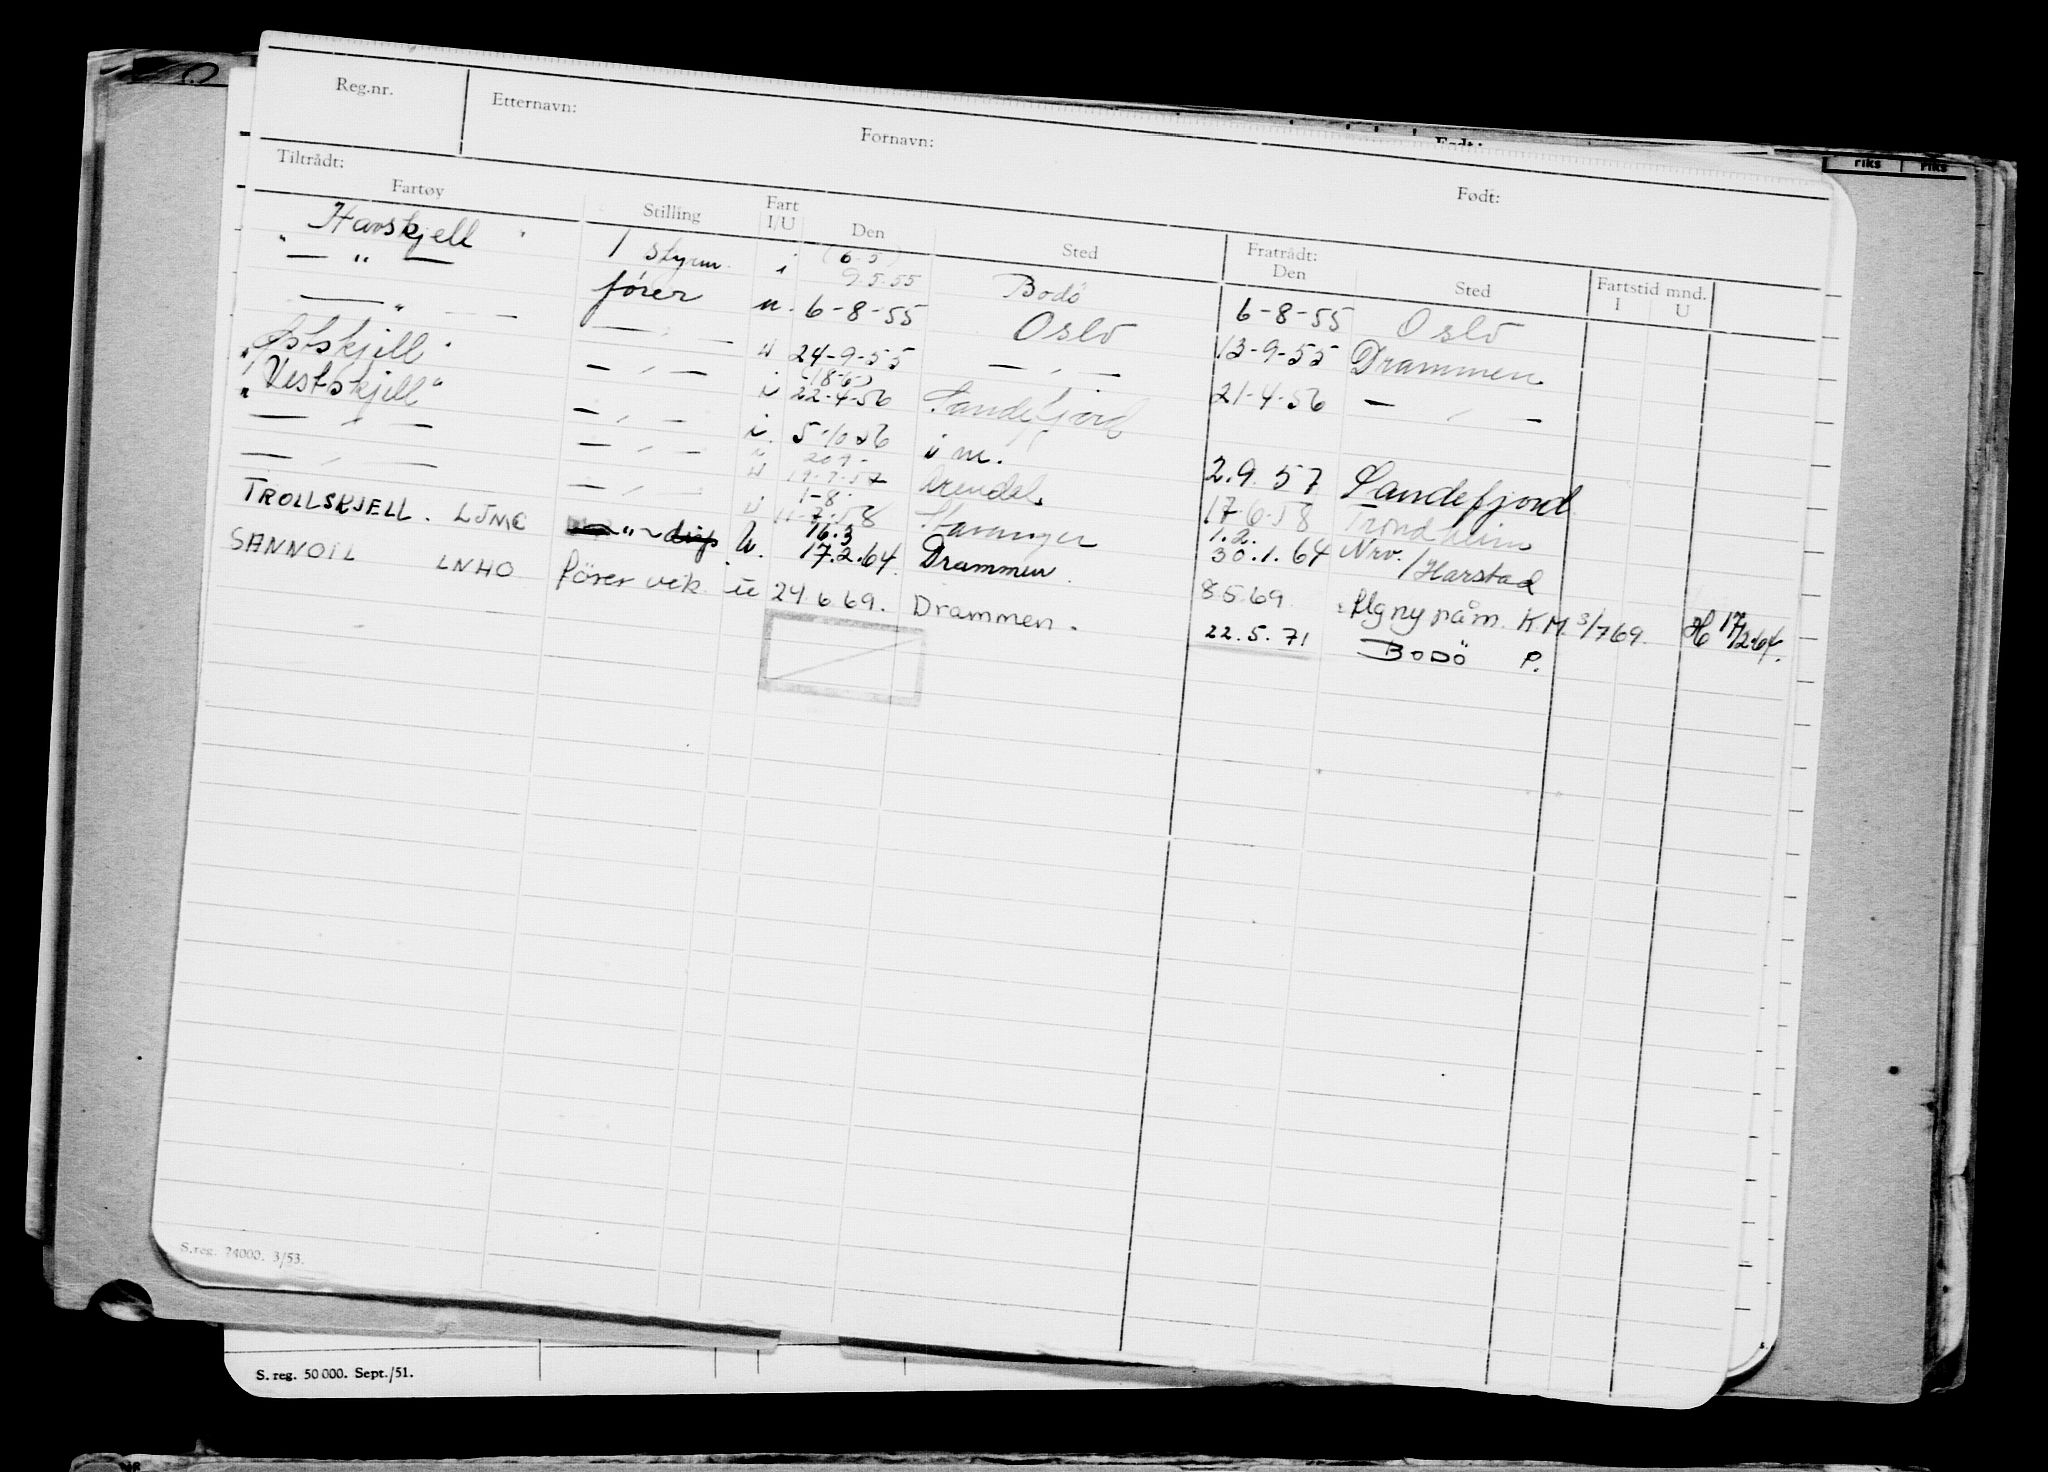 Reg.nr. Etternavn: Fornavn: Født:
Tiltrådt: Fratrådt:
Fartøy Stilling Fart I/U Den Sted Den Sted Fartstid mnd. I U
"Havskjell" 1 styrm. i (6.5) 9.5.55 Bodö 6-8-55 Oslo
— " — fører u. 6-8-55 Oslo 13-9-55 Drammen
— " — — " — u 24-9-55 — " — 21-4-56 — " —
"Østskjell" — " — u (18-6) 22-4-56 Sandefjord
"Vestskjell" — " — i. 5-10-56 i m. 2.9.57 Sandefjord
— " — — " — u 20.9- 19.9.57 Arendal 17-6-58 Trondheim
— " — — " — u 1-8. 11-7-58 Stavanger 1.2. 30.1.64 Nrv./Harstad
TROLLSKJELL. LJMC " u. 16.3 17.2.64. Drammen. 8.5.69 flg ny påm. K.M. 3/7 69. H 17/2.64.
SANNOIL LNHO fører vek. u 24 6 69. Drammen. 22.5.71 BODÖ P.
S.reg. 74000. 3/53.
S. reg. 50 000. Sept./51.
Født:
riks riks